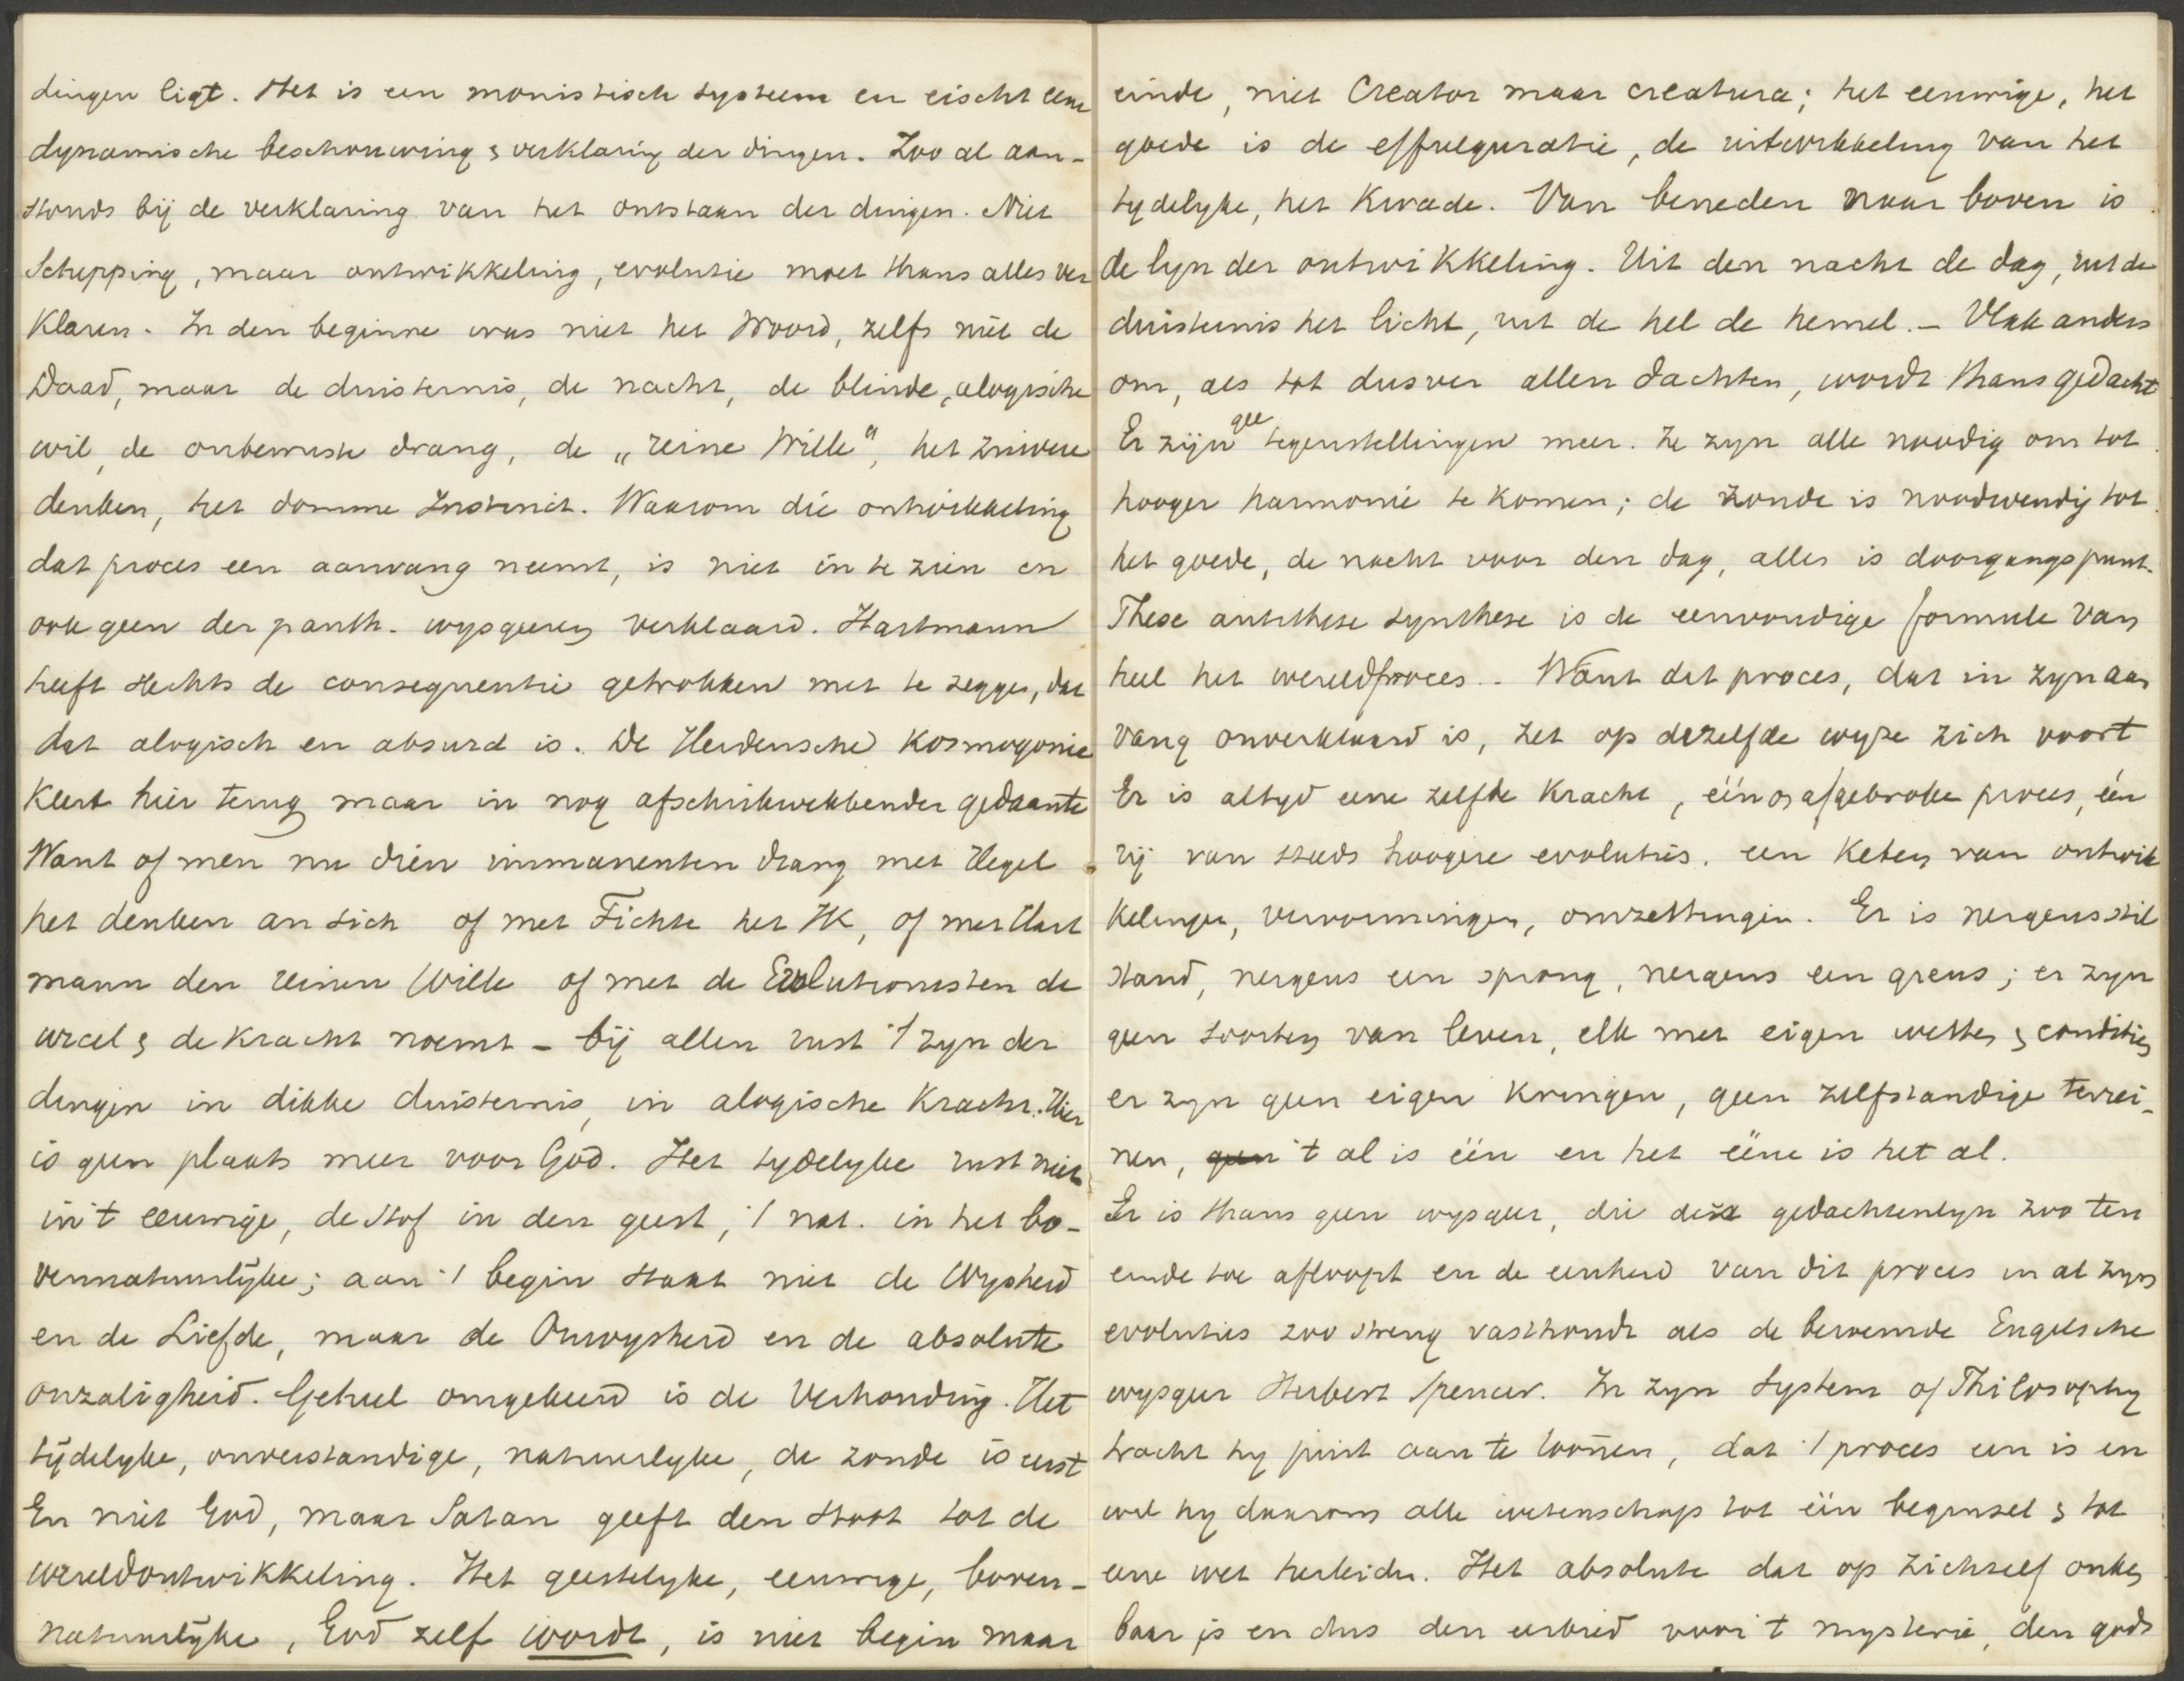 dingen ligt. Het is een monistisch systeem en eischt eene
dynamische beschouwing & verklaring der dingen. Zoo al aan-
stonds bij de verklaring van het ontstaan der dingen. Niet
Schepping, maar ontwikkeling, evolutie moet thans alles ver
klaren. In den beginne was niet het Woord, zelfs niet de
Daad, maar de duisternis, de nacht, de blinde, alogische
wil, de onbewuste drang, de „reine Wille", het zuivere
denken, het domme Instinct. Waarom die ontwikkeling
dat proces een aanvang neemt, is niet in te zien en
ook geen der panth. wysgeeren verklaard. Hartmann
heeft slechts de consequentie getrokken met te zeggen, dat
dat alogisch en absurd is. De Heidensche Kosmogonie
keert hier terug maar in nog afschrikwekkender gedaante
Want of men nu dien immanenten drang met Hegel
het denken an sich of met Fichte het IK, of met Hart
mann den reinen Wille of met de Evolutionisten de
urcel & de kracht noemt - bij allen rust 't zyn der
dingen in dikke duisternis, in alogische Kracht. Hier
is geen plaats meer voor God. Het tydelyke rust niet
in 't eeuwige, de stof in den geest, 't nat. in het bo-
vennatuurlyke; aan 't begin staat niet de Wysheid
en de Liefde, maar de Onwysheid en de absolute
onzaligheid. Geheel omgekeerd is de Verhouding. Het
tydelyke, onverstandige, natuurlyke, de zonde is eerst
En niet God, maar Satan geeft den stoot tot de
wereldontwikkeling. Het geestelyke, eeuwige, boven-
natuurlyke, God zelf wordt, is niet begin maar
einde, niet Creator maar creatura; het eeuwige, het
goede is de effulguratie, de uitwikkeling van het
tydelyke, het Kwade. Van beneden naar boven is
de lyn der ontwikkeling. Uit den nacht de dag, uit de
duisternis het licht, uit de hel de hemel. - Vlak anders
om, als tot dusver allen dachten, wordt thans gedacht
Er zijn gee tegenstellingen meer. Ze zyn alle noodig om tot
hooger harmonie te komen; de zonde is noodwendig tot
het goede, de nacht voor den dag, alles is doorgangspunt.
These antithese synthese is de eenvoudige formule van
heel het wereldproces. - Want dat proces, dat in zyn aan
vang onverklaard is, zet op dezelfde wyze zich voort
Er is altyd eene zelfde Kracht, één afgebroke proces, één
rij van steeds hoogere evoluties, een Keten van ontwik
kelingen, vervormingen, omzettingen. Er is nergens stil
stand, nergens een sprong, nergens een grens; er zyn
geen soorten van leven, elk met eigen wetten & condities
er zyn geen eigen kringen, geen zelfstandige terrei-
nen, geen 't al is één en het ééne is het al.
Er is thans geen wysgeer, die deze gedachtenlyn zoo ten
einde toe afloopt en de eenheid van dit proces in al zyn
evoluties zoo streng vasthoudt als de beroemde Engelsche
wysgeer Herbert Spencer. In zyn System of Philosophy
tracht hy juist aan te toonen, dat 't proces een is en
wil hy daarom alle wetenschap tot één beginsel & tot
eene wet herleiden. Het absolute dat op zichzelf onken
baar is en dus den eerbied voor 't mysterie, den gods